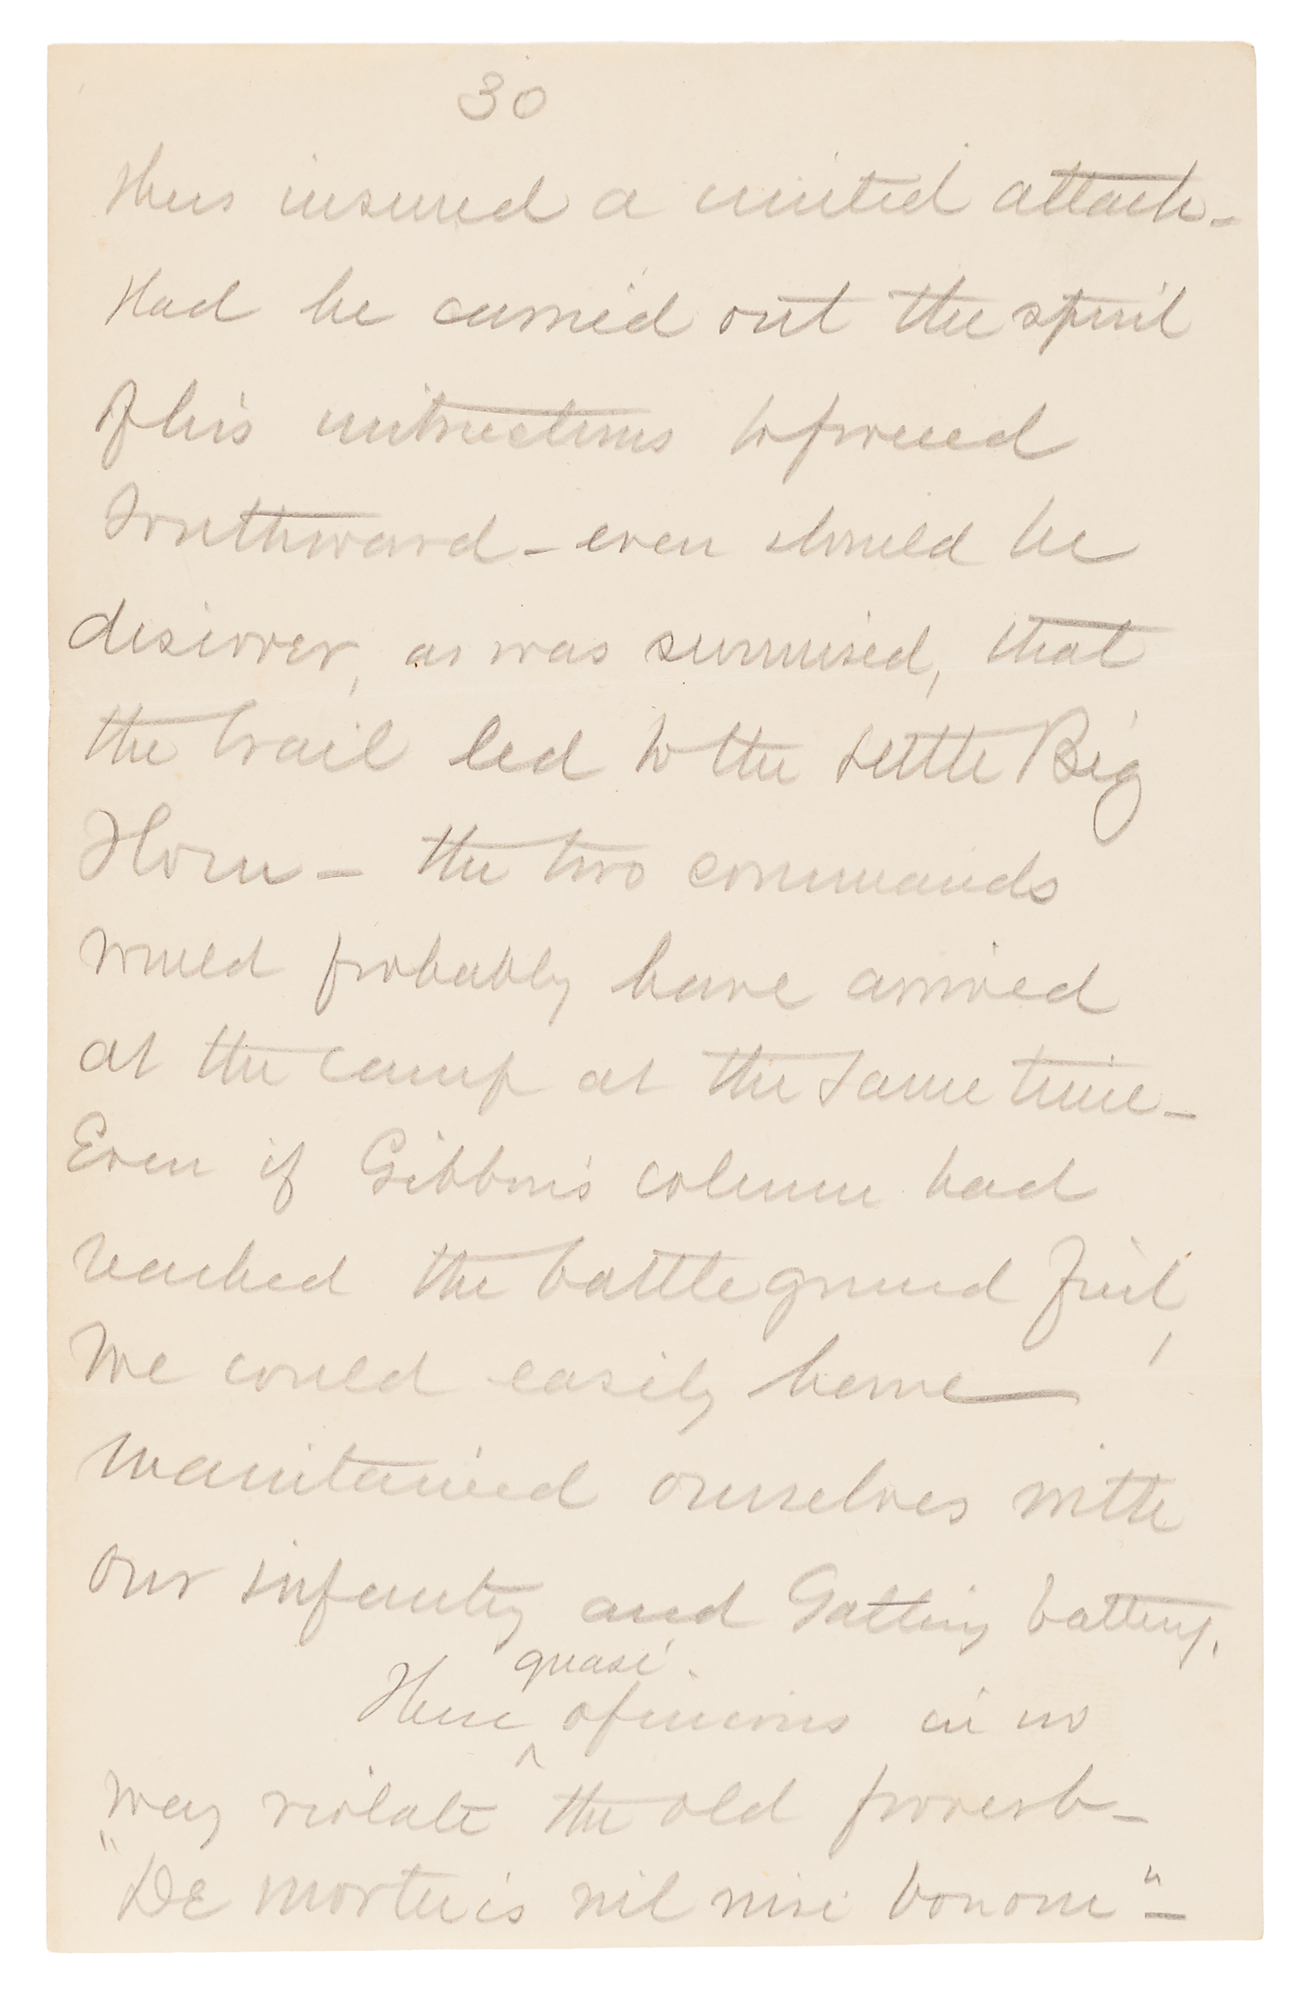 30
thus insured a united attack –
Had he carried out the spirit
of his instructions to proceed
Southward – even should he
discover, as was surmised, that
the trail led to the Little Big
Horn – the two commands
would probably have arrived
at the camp at the same time –
Even if Gibbon's column had
reached the battleground first,
we could easily have
maintained ourselves with
our infantry and Gatling battery.
quasi
These ^ opinions in no
way violate the old proverb –
"De mortuis nil nisi bonom" –